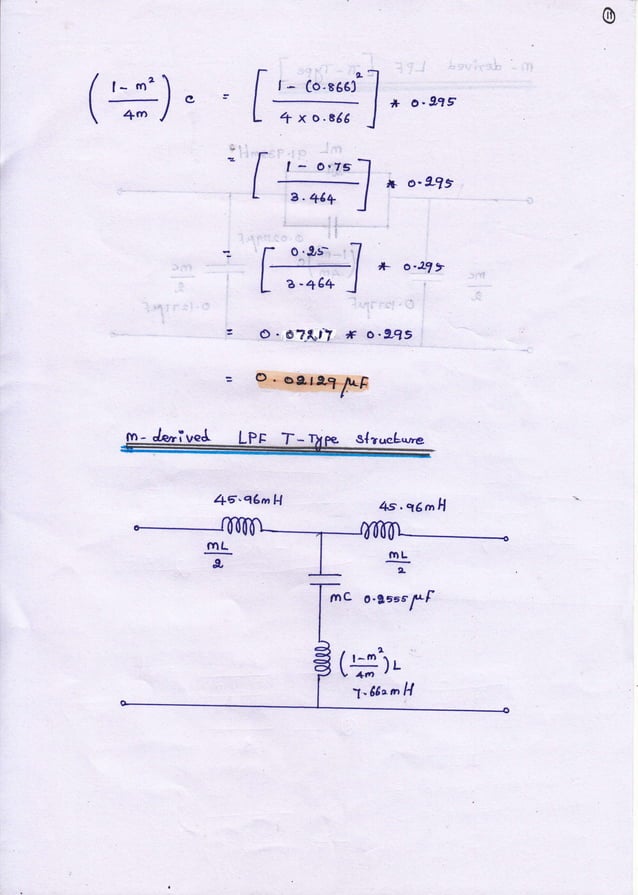 11
(1 - m² / 4m) c = [1 - (0.866)² / 4 x 0.866] * 0.295
= [1 - 0.75 / 3.464] * 0.295
= [0.25 / 3.464] * 0.295
= 0.07217 * 0.295
= 0.02129 μF
m-derived LPF T-Type structure
45.96mH 45.96mH
mL/2 mL/2
mC 0.2555 μF
(1-m²/4m) L
7.662mH